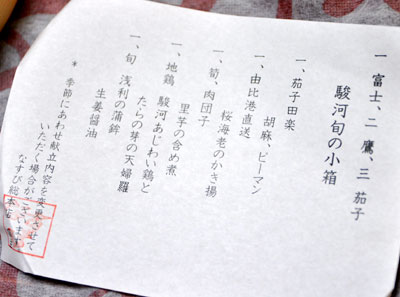 一 富士、二 鷹、三 茄子
駿河旬の小箱
一、茄子田楽
胡麻、ピーマン
一、由比港直送
桜海老のかき揚
一、筍、肉団子
里芋の含め煮
一、地鶏 駿河あじわい鶏と
たらの芽の天婦羅
一、旬 浅利の蒲鉾
生姜醤油
* 季節にあわせ献立内容を変更させて
いただく場合がございます
なすび総本店